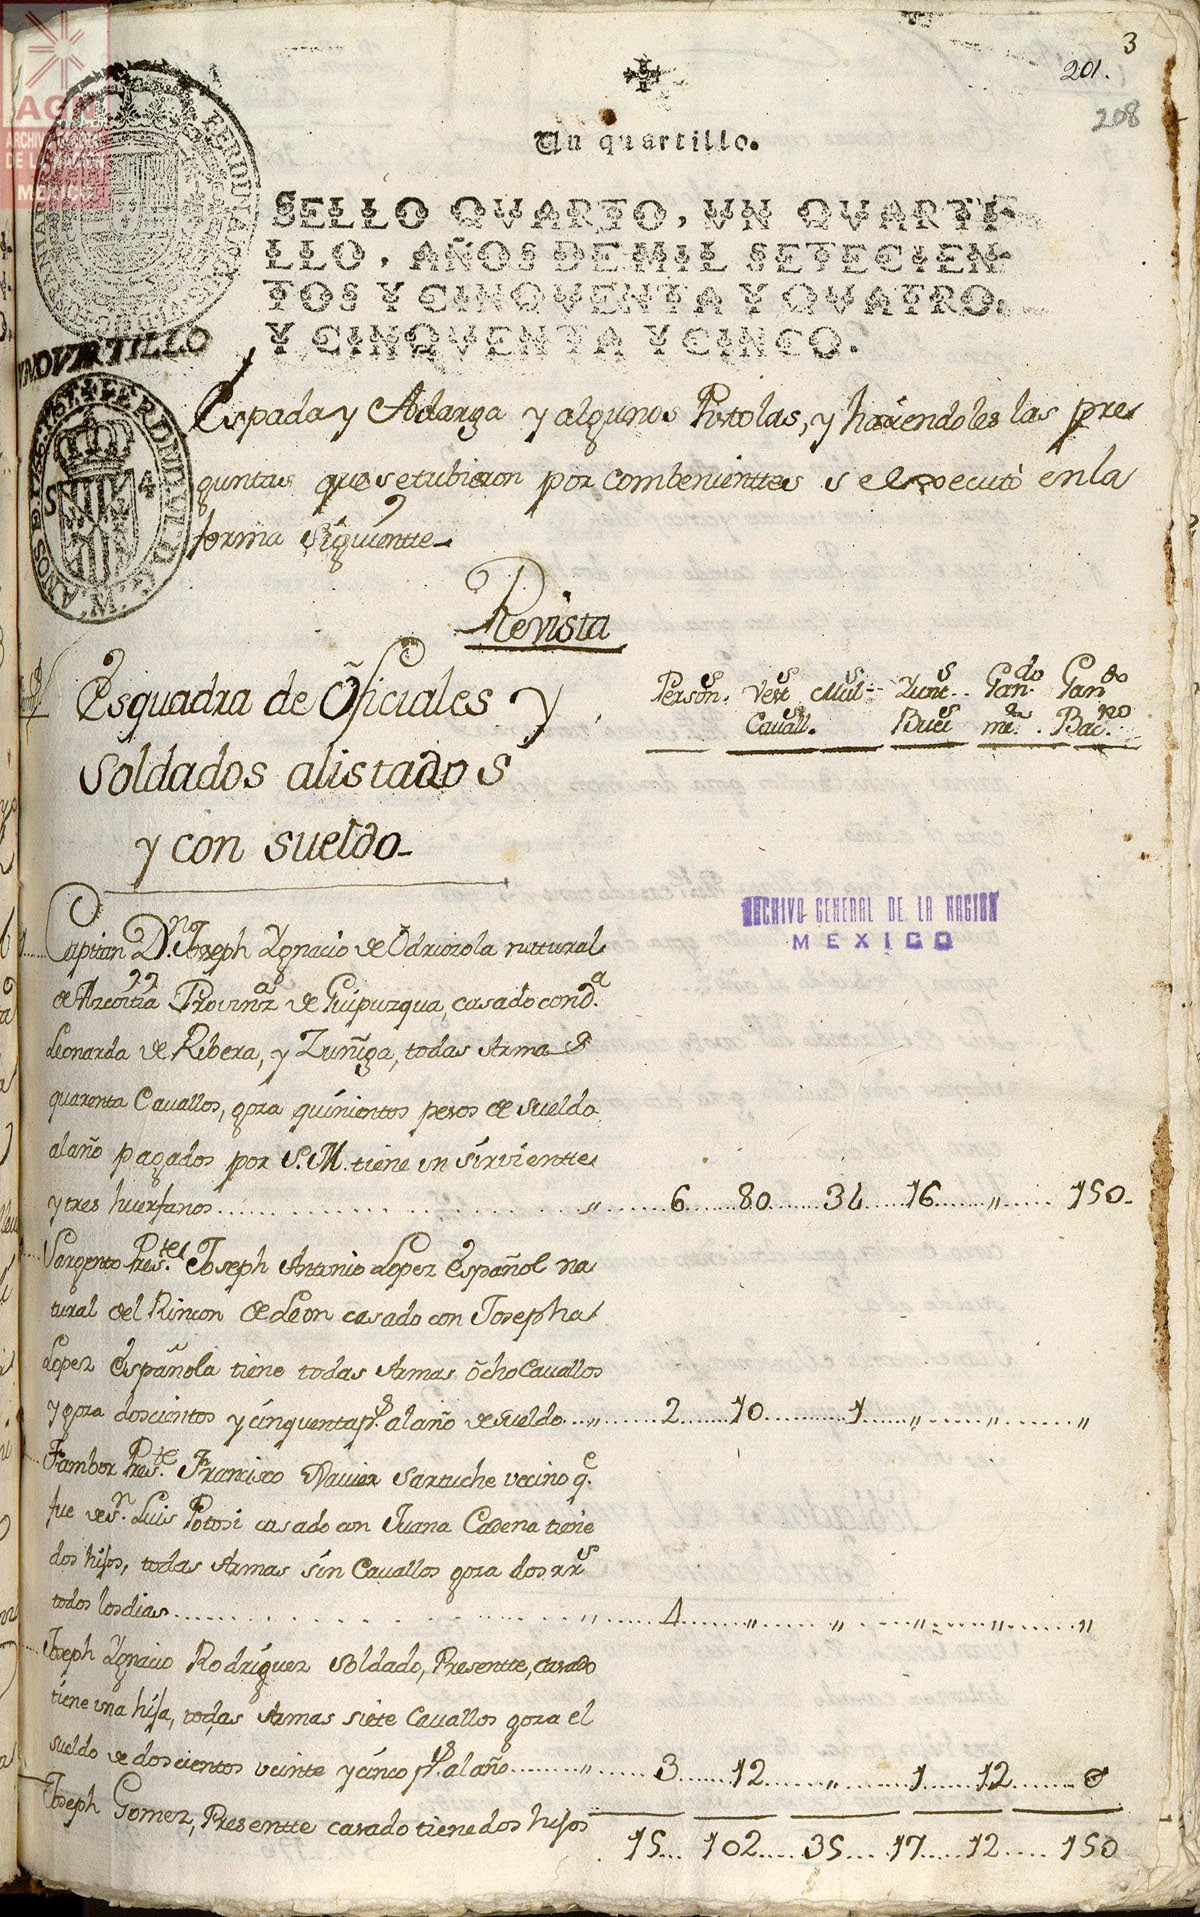 3
201.
208
AGN
ARCHIVO GENERAL
DE LA NACIÓN
MÉXICO
Un quartillo.
SELLO QVARTO, VN QVARTI-
LLO, AÑOS DE MIL SETECIEN-
TOS Y CINQVENTA Y QVATRO,
Y CINQVENTA Y CINCO.
VN QVARTILLO
S 4
Espada y Adarga y algunos Pistolas, y haziendoles las pre
guntas que se tubieron por combenienttes se executó en la
forma siguientte
Revista
Person.s Vest.s Mul.s Yunt.s Gan.do Gan.do
Cavall.s Buei.s me.r Bac.no
Esquadra de Oficiales y
Soldados alistados
y con sueldo
Capitan D.n Joseph Ygnacio de Odriozola natural
de Azcoitia Provinz.a de Guipuzqua, casado con d.a
Leonarda de Ribera, y Zuñiga, todas Armas
quarenta Cavallos, goza quinientos pesos de sueldo
al año pagados por S.M. tiene un sirvientte
y tres huerfanos " 6 80 34 16 " 150
Sargento Pres.te Joseph Antonio Lopez Español na
tural del Rincon de Leon casado con Josepha
Lopez Española tiene todas Armas ocho Cavallos
y goza doscientos y cinquenta p.s al año de sueldo " 2 10 1 " " "
Tambor Pres.te Francisco Xavier Sartuche vecino q.e
fue de S.n Luis Potosi casado con Juana Cadena tiene
dos hijos, todas Armas sin Cavallos goza dos rr.s
todos los dias " 4 " " " " "
Joseph Ygnacio Rodriguez Soldado, Presentte, casado
tiene una hija, todas Armas siete Cavallos goza el
sueldo de doscientos veinte y cinco p.s al año " 3 12 " 1 12 0
Joseph Gomez, Presentte casado tiene dos hijos
15 102 35 17 12 150
ARCHIVO GENERAL DE LA NACION
MEXICO